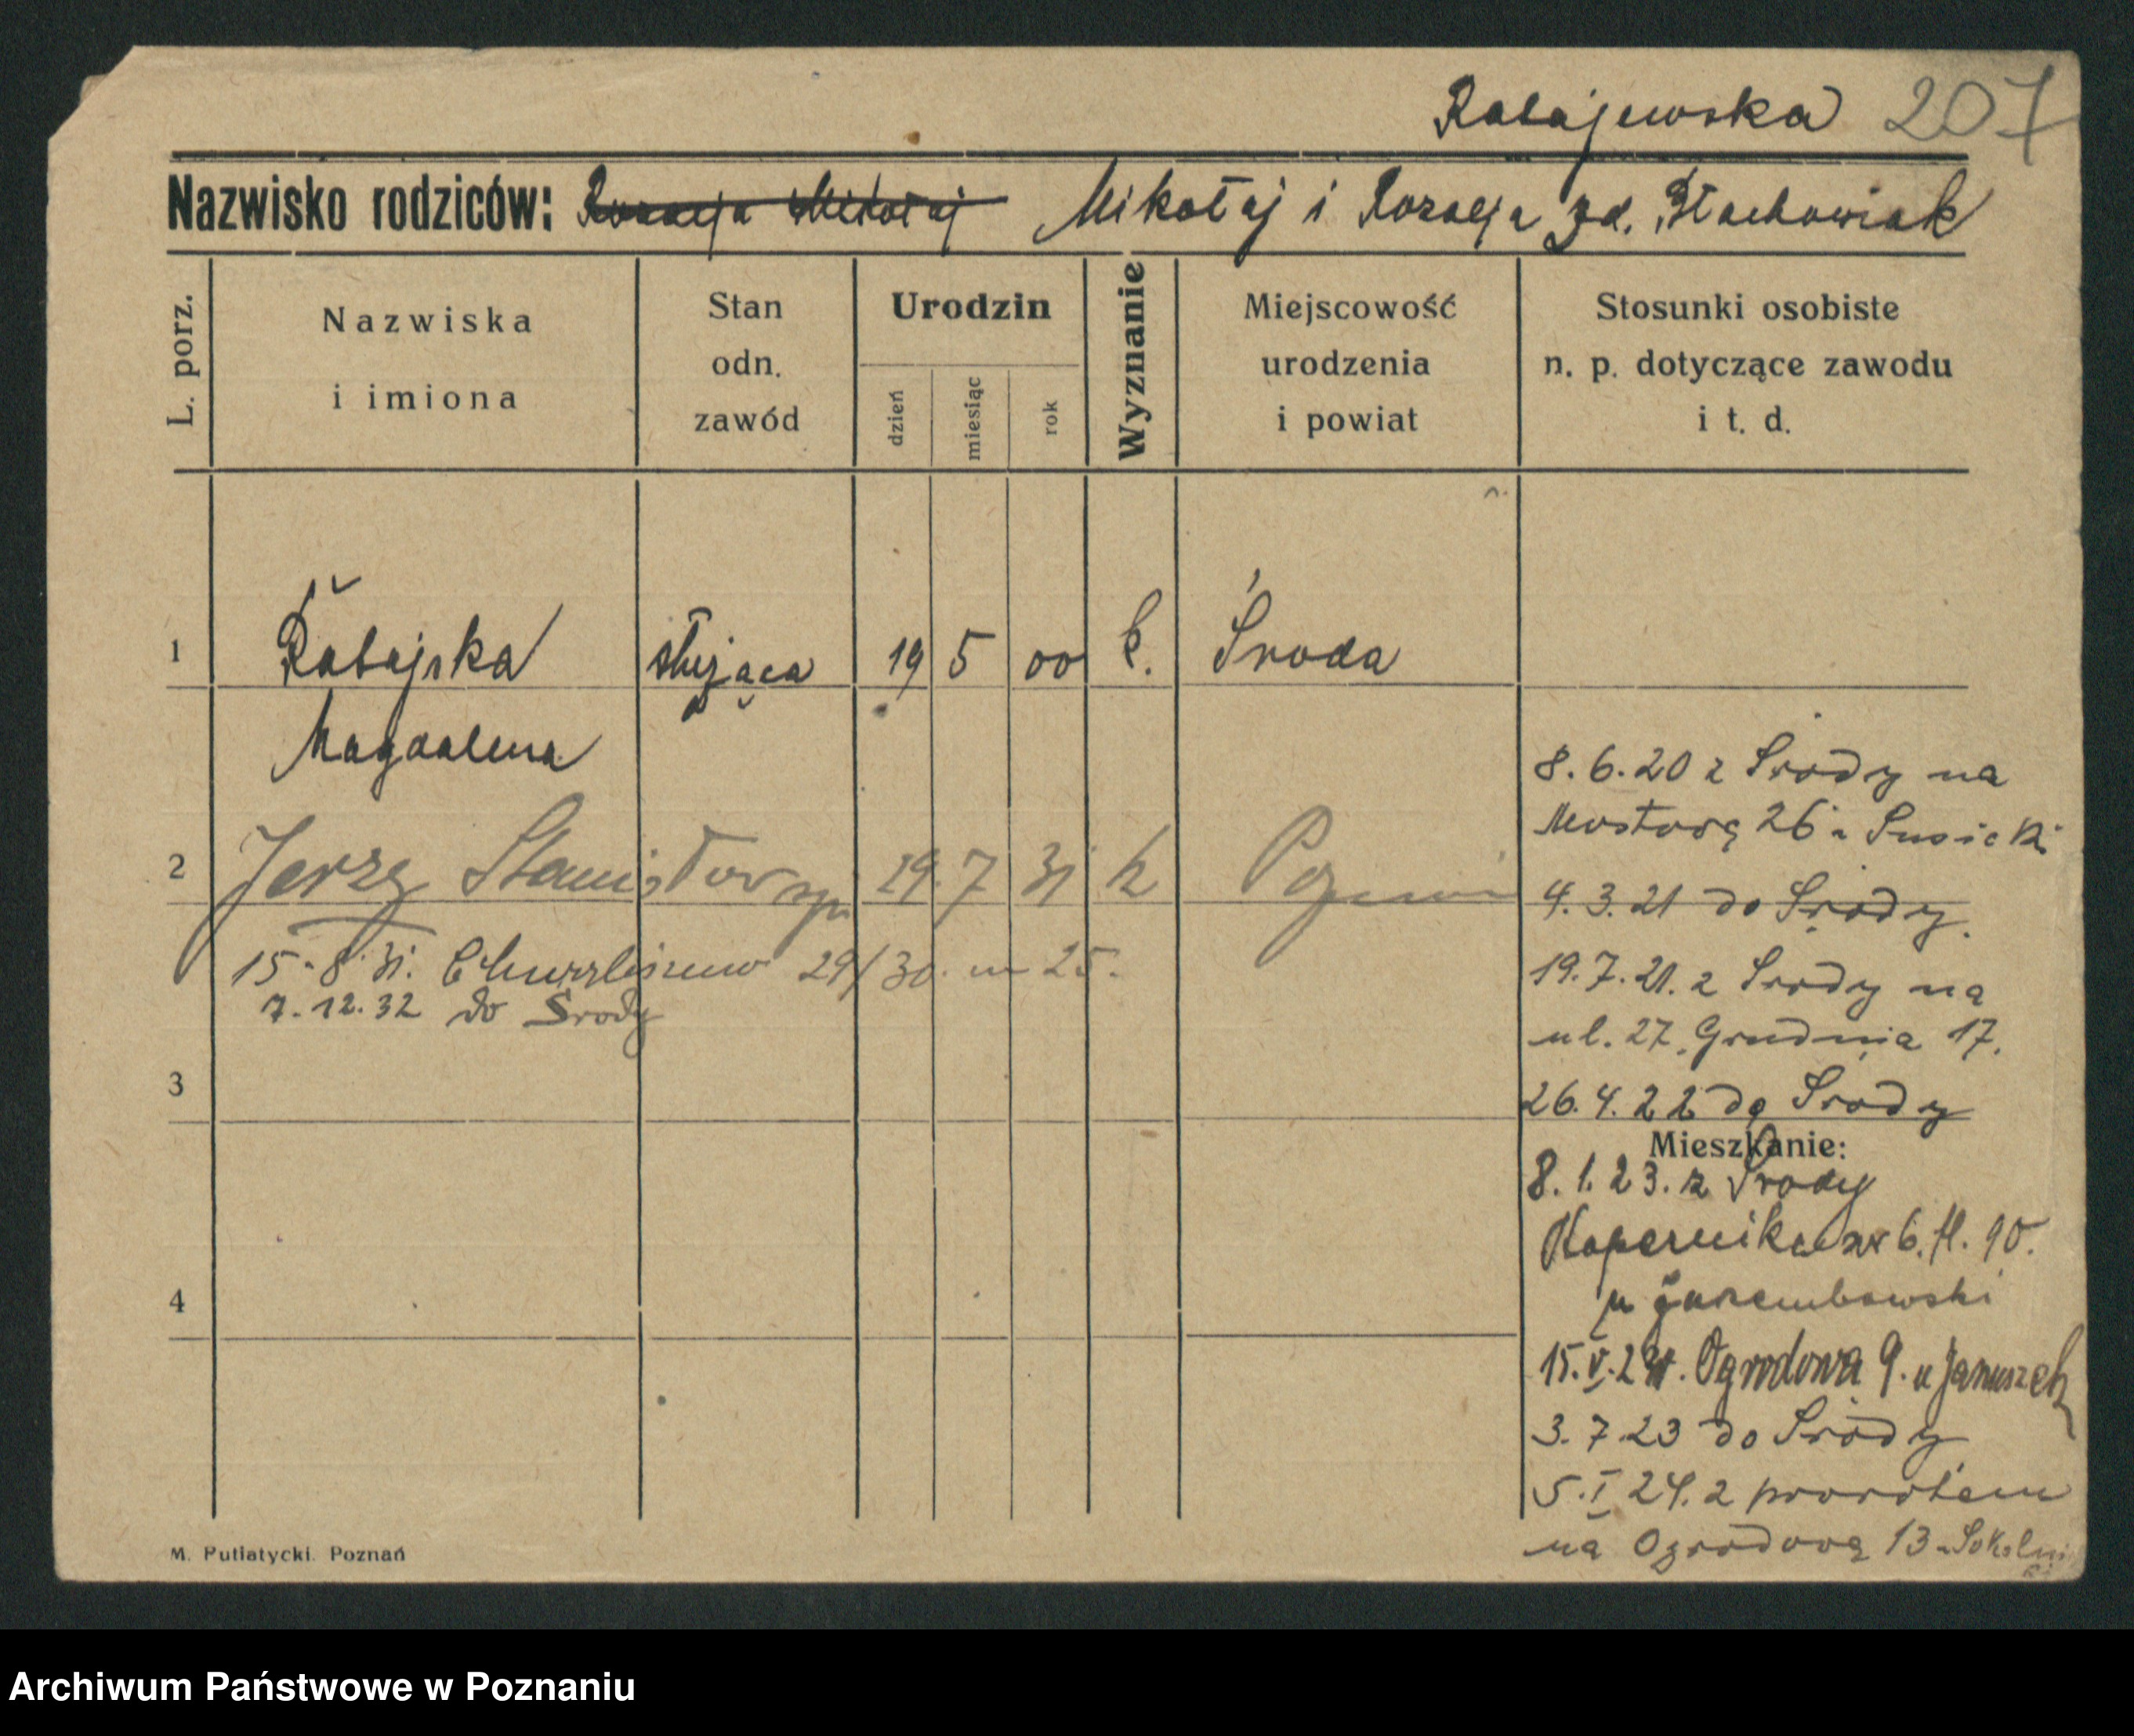 Ratajewska 207
Nazwisko rodziców: Rozalja Mikołaj Mikołaj i Rozalja zd. Błachowiak
L. porz.
Nazwiska
i imiona
Stan
odn.
zawód
Urodzin
dzień
miesiąc
rok
Wyznanie
Miejscowość
urodzenia
i powiat
Stosunki osobiste
n. p. dotyczące zawodu
i t. d.
1 Ratajska służąca 19 5 00 k. Środa
Magdalena
8.6.20 z Środy na
Mostową 26 u Susicki
2 Jerzy Stanisław 29. 7 31 k Poznań
4.3.21 do Środy.
15.8.31. Chwaliszewo 29/30. m 25.
7.12.32 do Środy
19.7.21. z Środy na
ul. 27. Grudnia 17.
3
26.4.22 do Środy
Mieszkanie:
8.1.23. z Środy
Kopernika nr 6. H. 90.
u Zarembowski
4
15.V.23. Ogrodowa 9. u Januszek
3.7.23 do Środy
5.I 24. z powrotem
na Ogrodową 13 u Sokolnicki
M. Putiatycki. Poznań
Archiwum Państwowe w Poznaniu